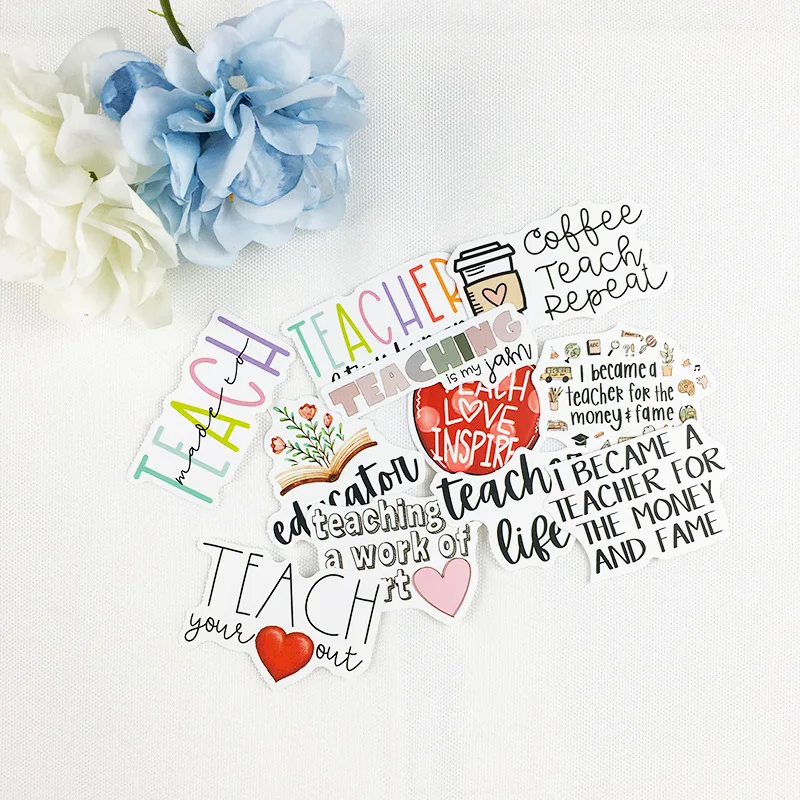 Coffee
Teach
Repeat
TEACHER
TEACHING
is my jam
TEACH
made to
I became a
teacher for the
money & fame
ABC
TEACH
LOVE
INSPIRE
educator
teacher
life
I BECAME A
TEACHER FOR
THE MONEY
AND FAME
teaching
a work of
TEACH
your
out